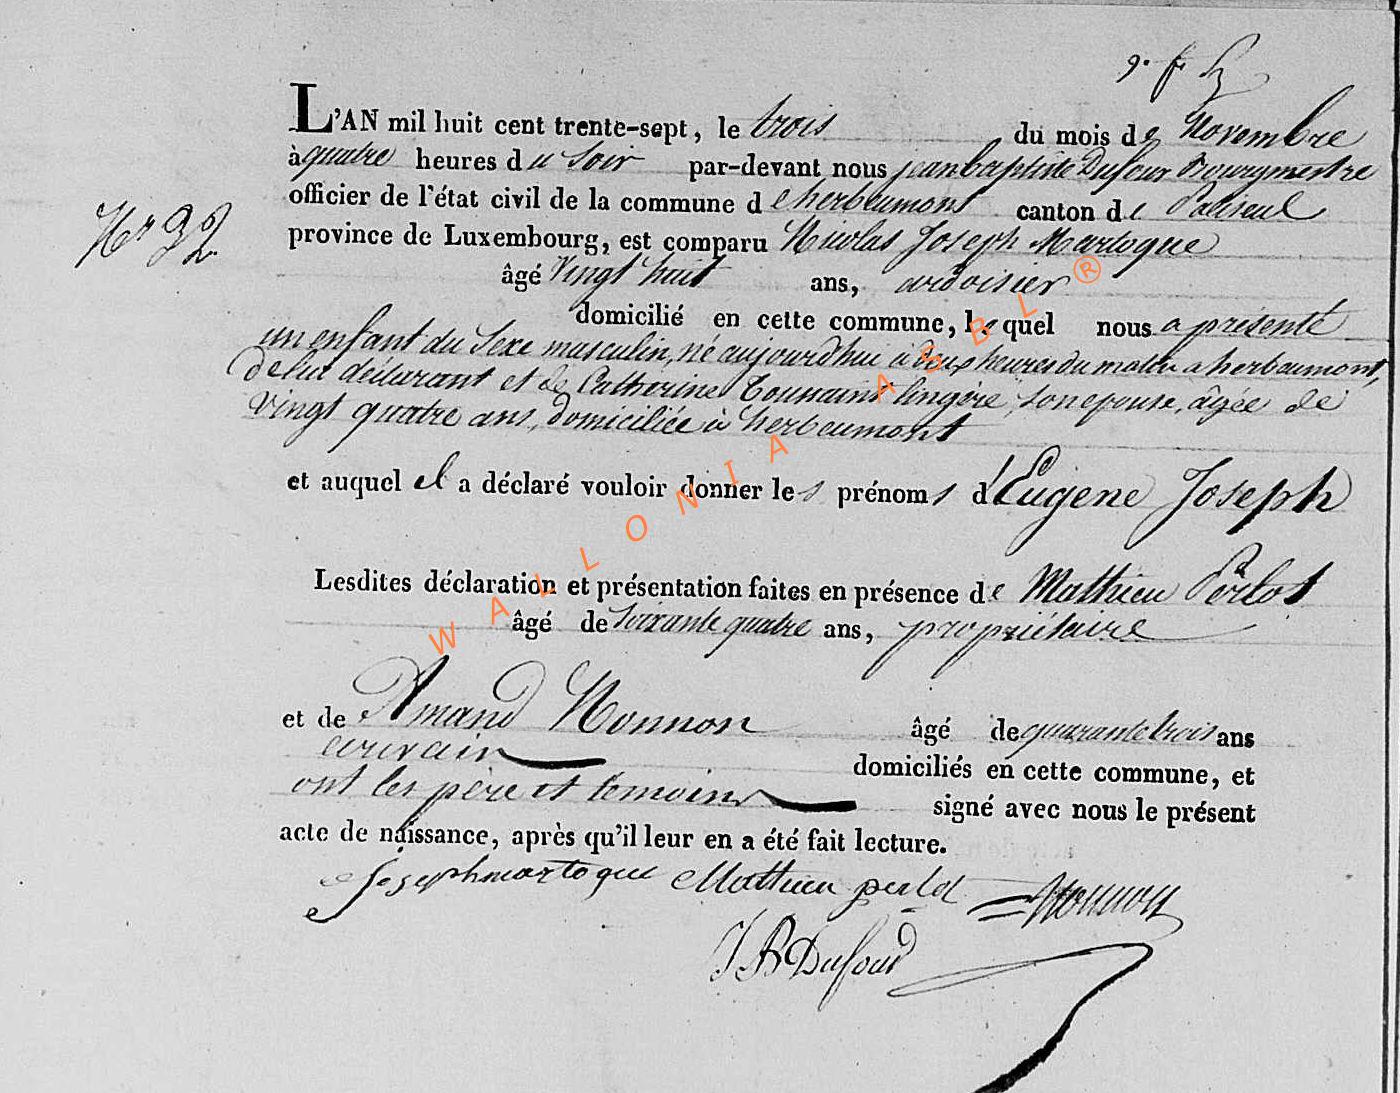 L'AN mil huit cent trente-sept, le trois du mois de Novembre
à quatre heures du Soir par-devant nous jean baptiste Dufour Bourgmestre
officier de l'état civil de la commune de herbeumont canton de Paliseul
Nr 32
province de Luxembourg, est comparu Nicolas Joseph Martoque
âgé Vingt huit ans, ardoisier
domicilié en cette commune, lequel nous a présenté
un enfant du Sexe masculin, né aujourd'hui à deux heures du matin a herbeumont,
de lui déclarant et de Catherine Toussaint lingère, son epouse, âgée de
vingt quatre ans, domiciliée à herbeumont
et auquel il a déclaré vouloir donner les prénoms d'Eugene Joseph
Lesdites déclaration et présentation faites en présence de Mathieu Perlot
âgé de soixante quatre ans, propriétaire
et de Amand Nonnon âgé de quarante trois ans
ecrivain domiciliés en cette commune, et
ont les père et temoins signé avec nous le présent
acte de naissance, après qu'il leur en a été fait lecture.
Joseph martoque Mathieu perlot Nonnon
J B Dufour
WALLONIA ASBL ®